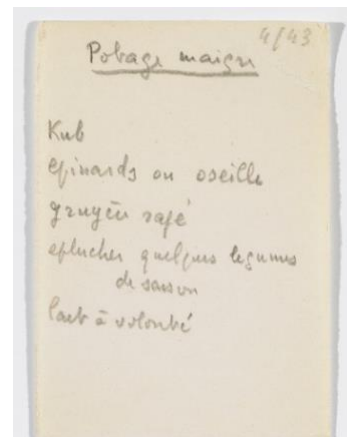 4/43
Potage maigre
Kub
épinards ou oseille
gruyère rapé
eplucher quelques legumes
de saison
lait à volonté